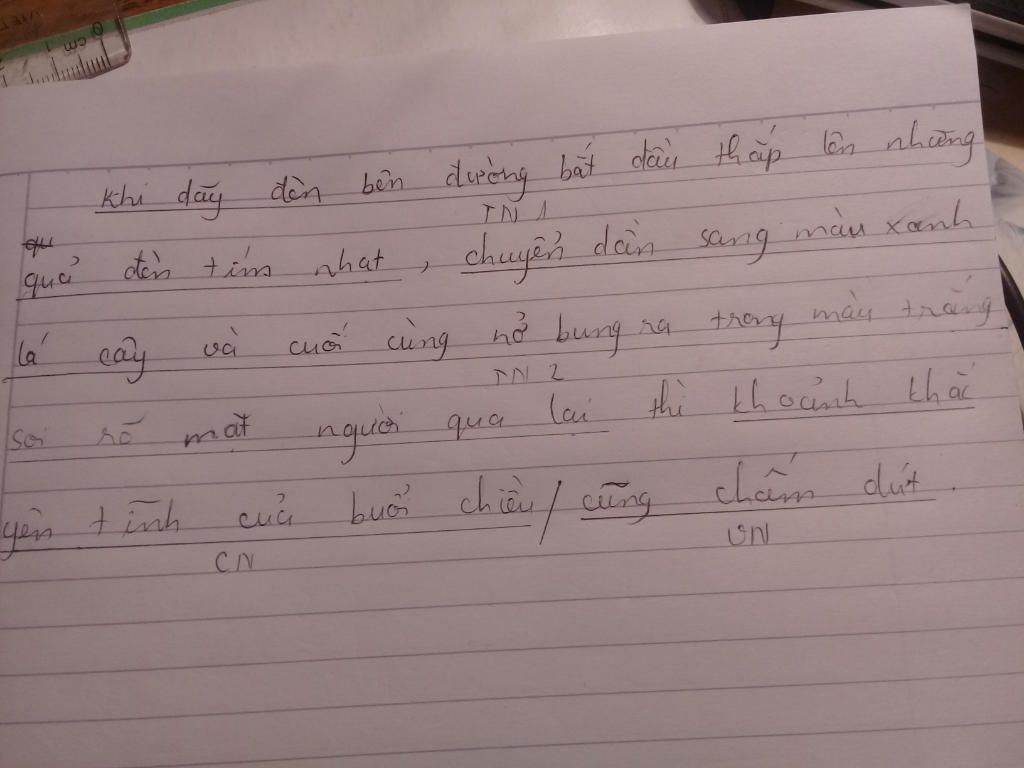 0 cm
Khi dãy đèn bên đường bắt đầu thắp lên những
TN 1
quả đèn tím nhạt, chuyển dần sang màu xanh
lá cây và cuối cùng nở bung ra trong màu trắng
TN 2
soi rõ mặt người qua lại thì khoảnh khắc
yên tĩnh của buổi chiều / cũng chấm dứt.
CN VN